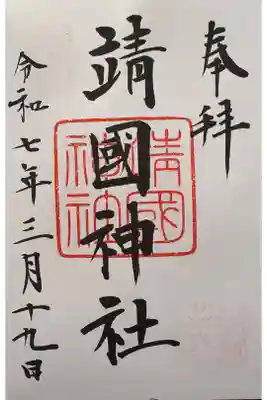 奉拝
靖國神社
令和七年三月十九日
靖國神社